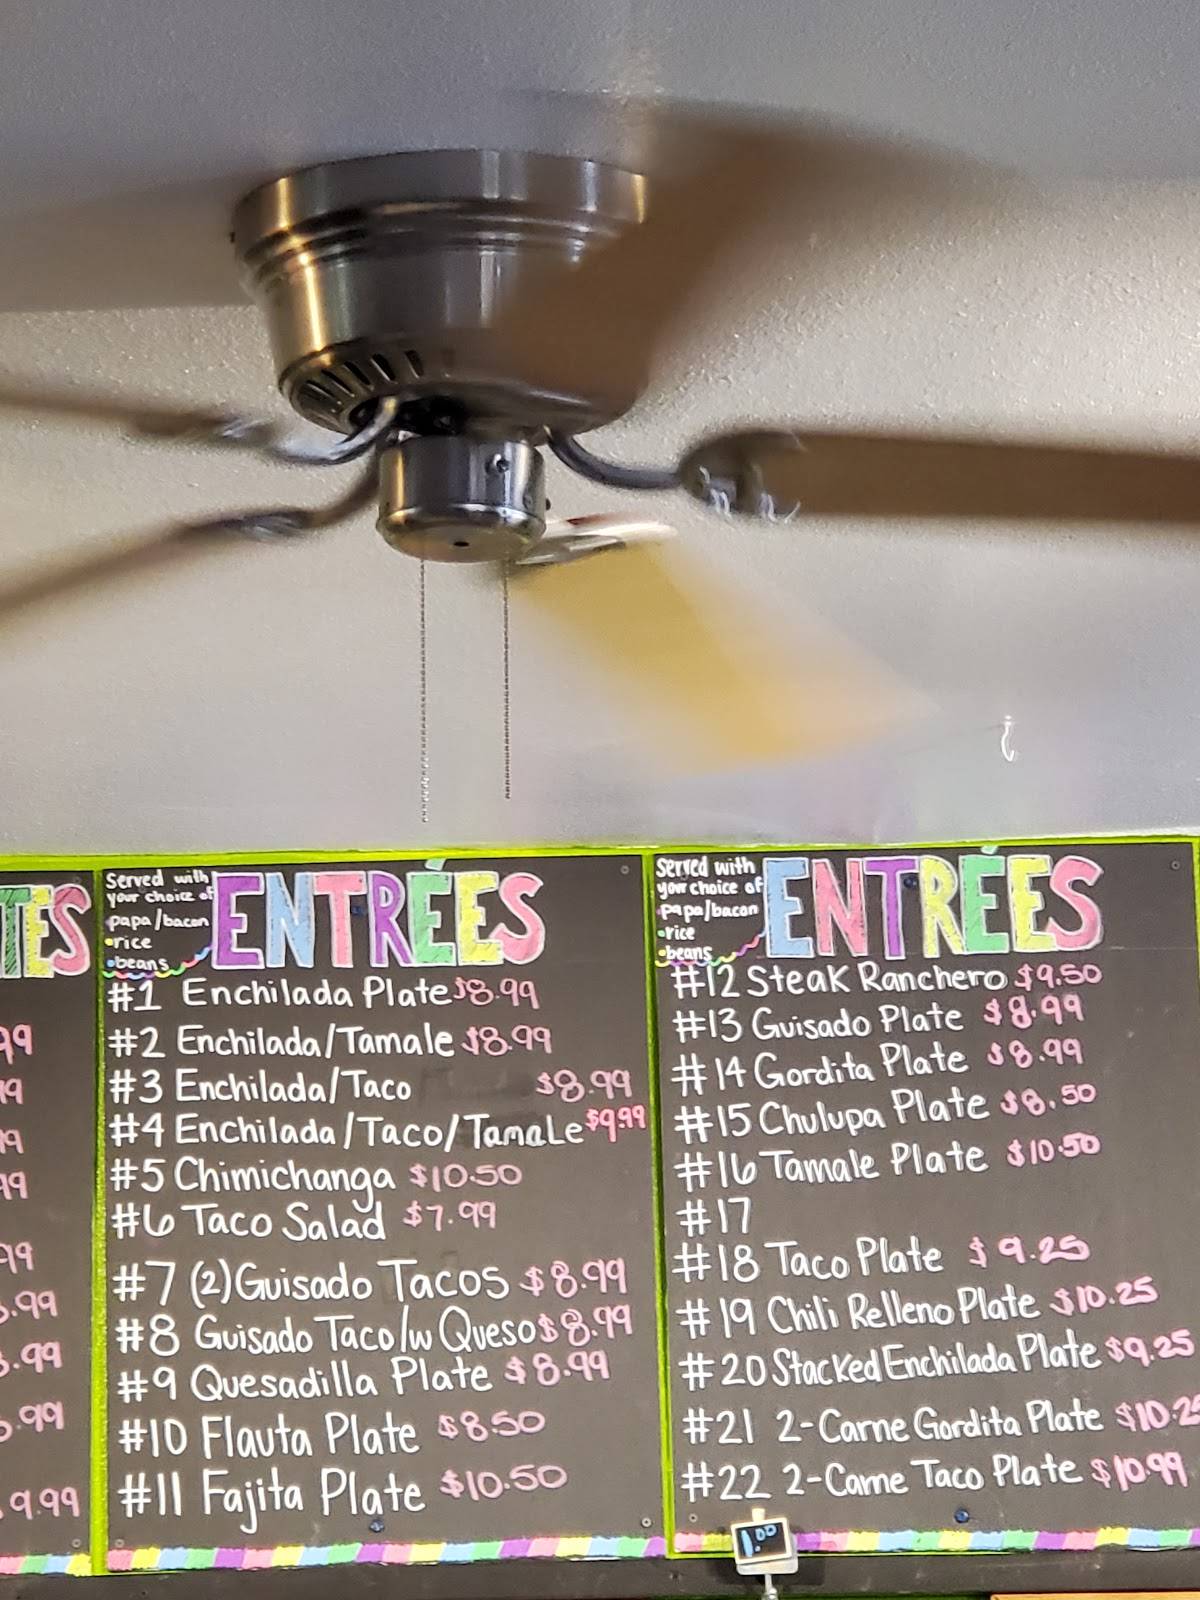 TES
99
99
99
99
99
.99
.99
.99
9.99
Served with
your choice of
papa/bacon
•rice
•beans
ENTRÉES
#1 Enchilada Plate $8.99
#2 Enchilada/Tamale $8.99
#3 Enchilada/Taco $8.99
#4 Enchilada/Taco/Tamale $9.99
#5 Chimichanga $10.50
#6 Taco Salad $7.99
#7 (2) Guisado Tacos $8.99
#8 Guisado Taco/w Queso $8.99
#9 Quesadilla Plate $8.99
#10 Flauta Plate $8.50
#11 Fajita Plate $10.50
Served with
your choice of
•papa/bacon
•rice
•beans
ENTRÉES
#12 Steak Ranchero $9.50
#13 Guisado Plate $8.99
#14 Gordita Plate $8.99
#15 Chulupa Plate $8.50
#16 Tamale Plate $10.50
#17
#18 Taco Plate $9.25
#19 Chili Relleno Plate $10.25
#20 Stacked Enchilada Plate $9.25
#21 2-Carne Gordita Plate $10.25
#22 2-Carne Taco Plate $10.99
1.00